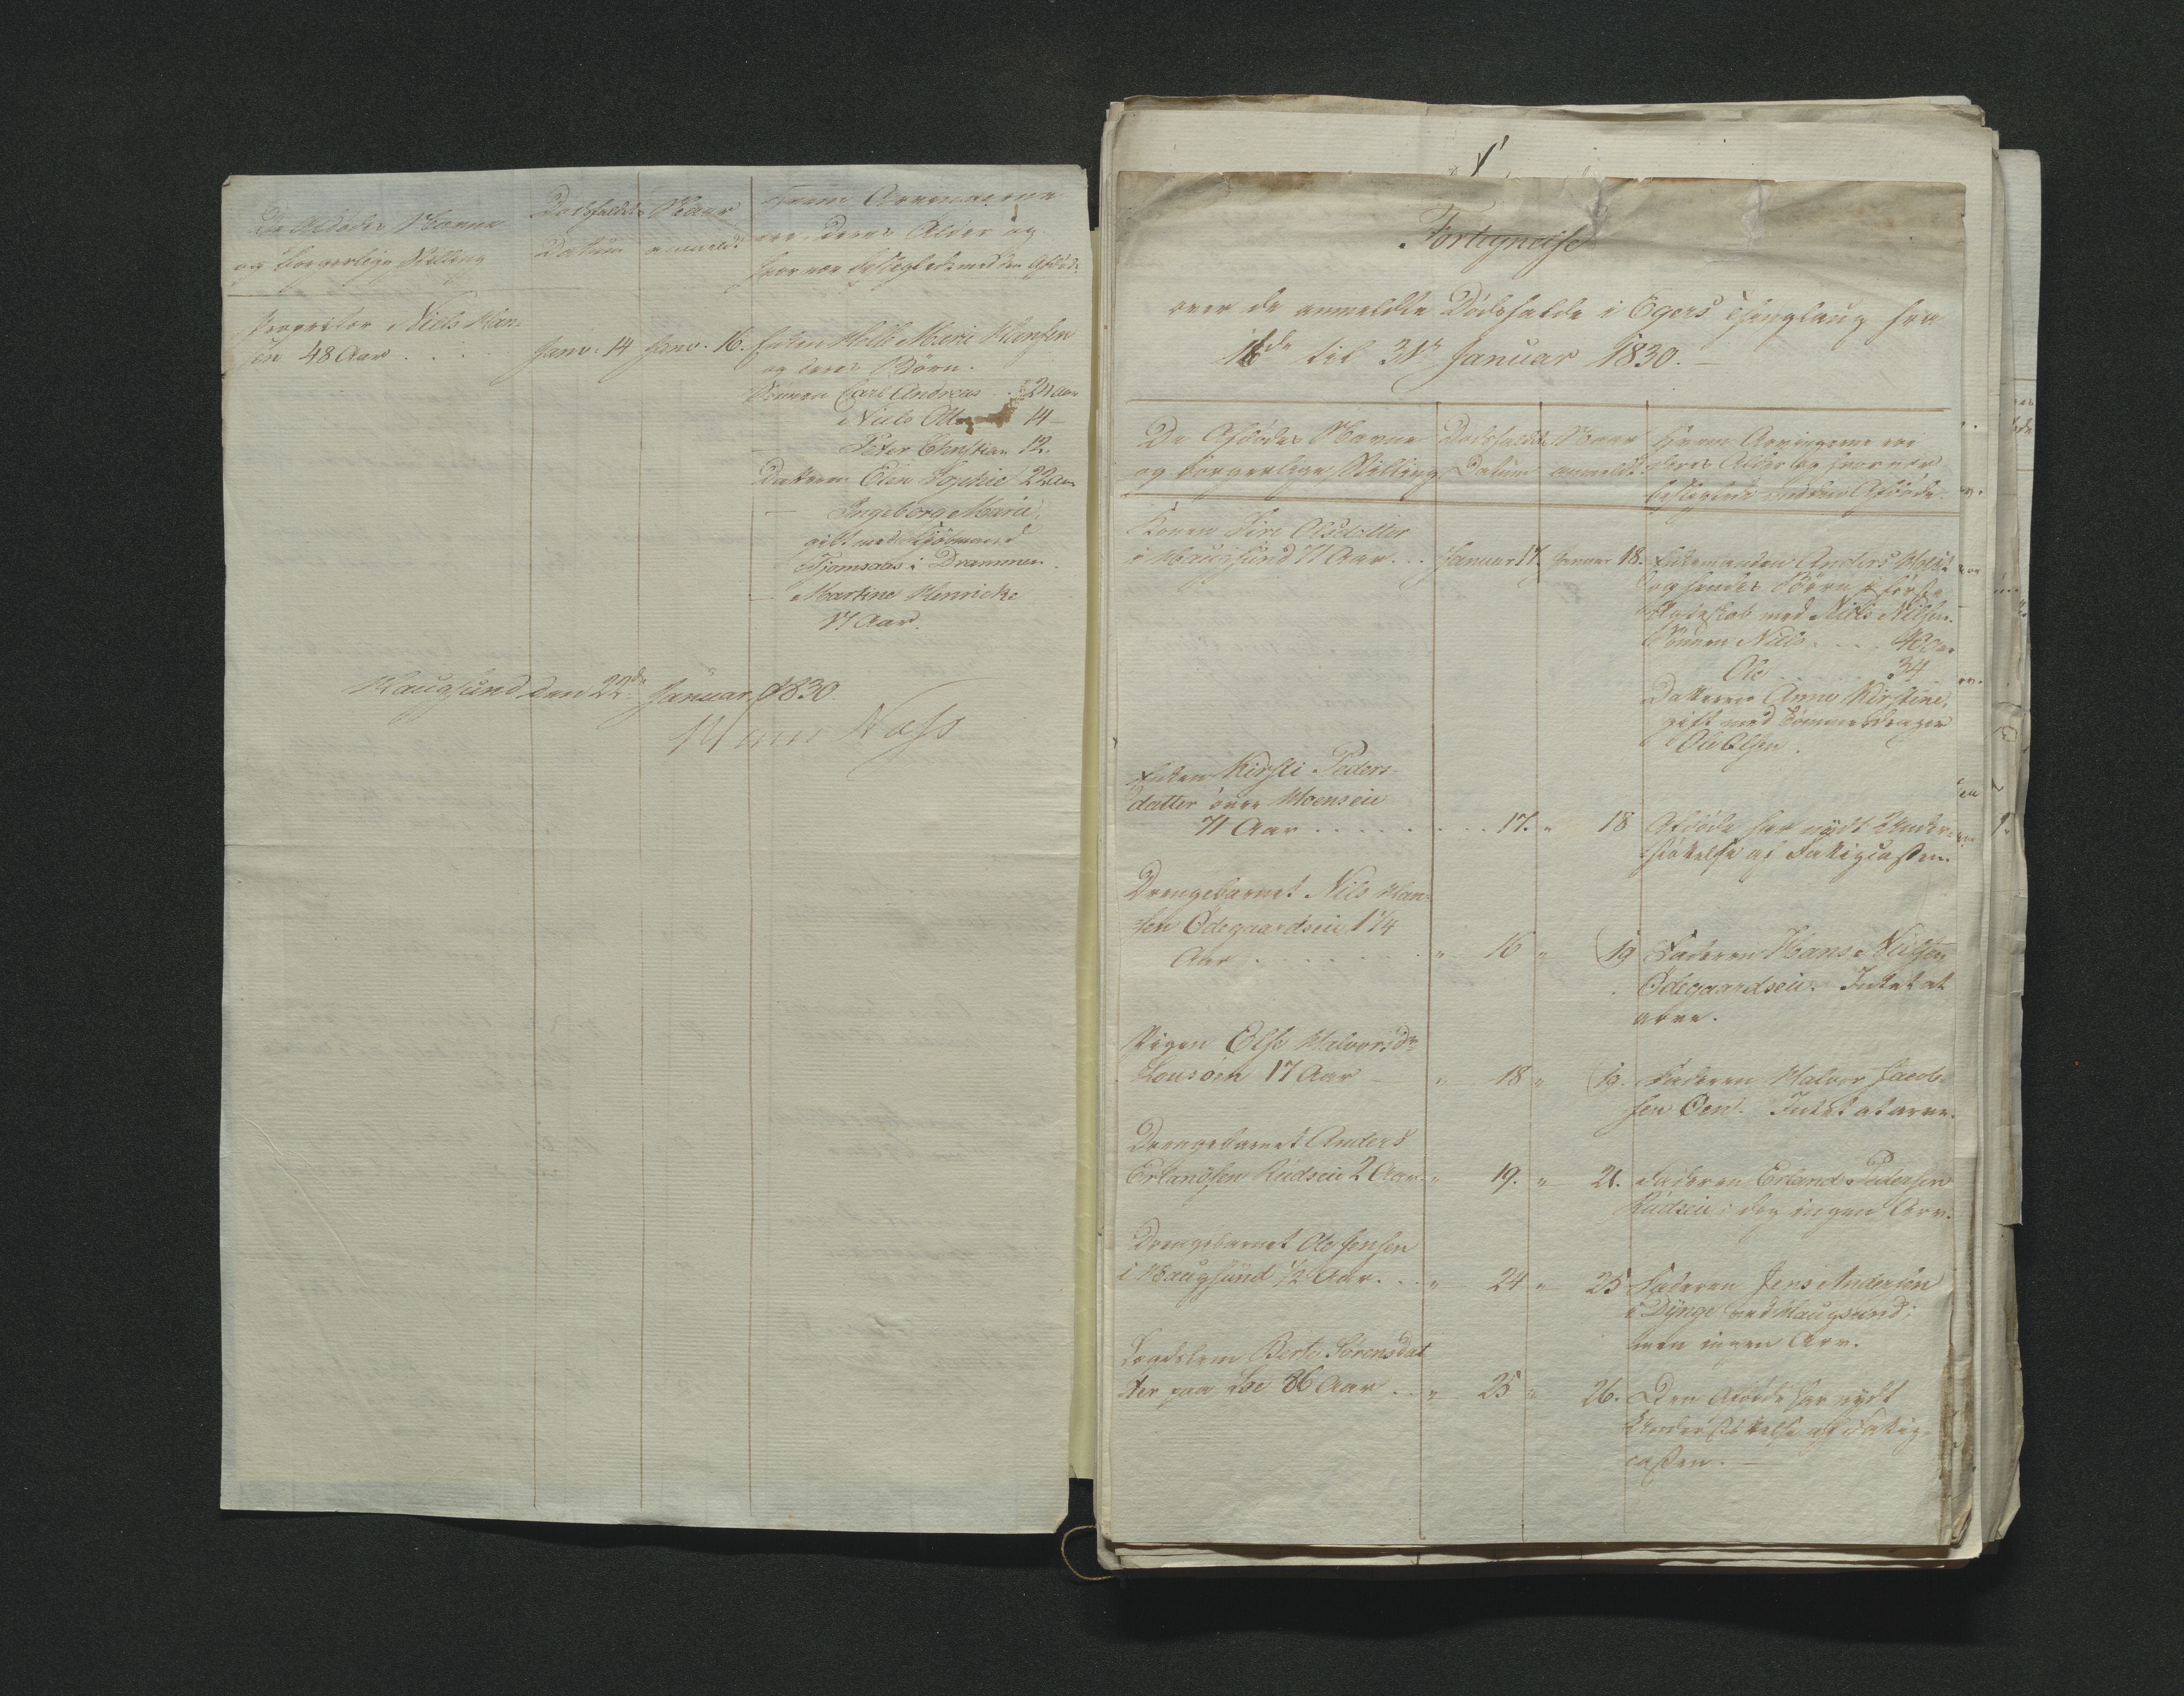 De Afdødes Navne
og borgerlige Stilling
Dødsfaldets
Datum
Naar
anmeldt
Hvem Arvingerne
ere, deres Alder og
hvor nær beslegtede med den Afdøde
Proprietor Niels Han-
sen 48 Aar . . . .
Janv. 14
Janv. 16.
Enken Helle Marie Hansen
og deres Børn.
Sønnen Carl Andreas . . 24 Aar
Niels Otto 14 –
– Peter Christian 12.
Datteren Elen Sophie 22 Aar
– Ingeborg Marie,
gift med
Tjomsaas i Drammen.
– Martine Henricke
17 Aar.
Haugsund den 22de Januar 1830.
Næss
Fortegnelse
over de anmeldte Dødsfalde i Egers Thinglaug fra
16de til 31te Januar 1830. –
De Afdødes Navne
og borgerlige Stilling
Dødsfaldets
Datum
Naar
anmeldt
Hvem Arvingerne ere
deres Alder og hvor nær
beslegtede med den Afdøde.
Konen Siri Olsdatter
i Haugsund 71 Aar. . .
Januar 17.
Januar 18.
Enkemanden Anders
og hendes Børn i første
Ægteskab med Niels Nilsen.
Sønnen Niels . . . . 40 Aar
Ole . . . . . 34
Datteren Anne Kirstine,
gift med Tømmerdrager
Ole Olsen.
Enken Kirsti Peders-
datter over Moenseie
71 Aar . . . . . . . . . 17. „ 18
Afdøde har nydt Under-
støttelse af Fattigcassen.
Drengebarnet Nils Han-
sen Ødegaardseie 1 1/4
Aar . . . . . . . . „ 16 „ 19
Faderen Hans Nilsen
Ødegaardseie. Intet at
arve.
Pigen Else Halvorsdr
Lousøen 17 Aar – „ 18 „ 19.
Faderen Halvor Jacob-
sen Øen. Intet at arve.
Drengebarnet Anders
Erlandsen Rudseie 2 Aar. „ 19. „ 21.
Faderen Erland Pedersen
Rudseie; dog ingen Arv.
Drengebarnet Ole Jensen
i Haugsund 1/2 Aar. . . „ 24 „ 25
Faderen Jens Andersen
i Dynge ved Haugsund;
men ingen Arv.
Lægdslem Berte Sørensdat
ter paa Loe 86 Aar . . „ 25 „ 26.
Den Afdøde har nydt
Understøttelse af Fattig-
cassen. –